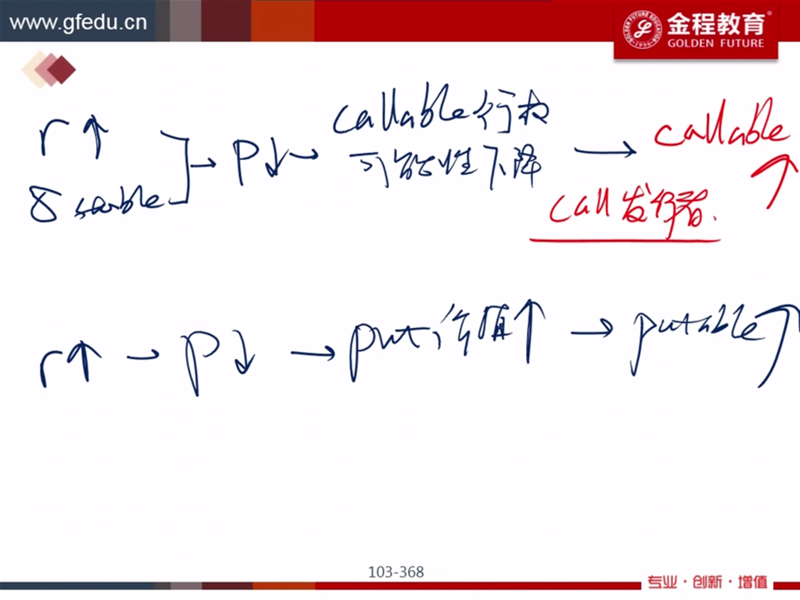 www.gfedu.cn
金程教育®
GOLDEN FUTURE
r↑
δ stable
→ P↓ → callable行权
可能性下降
→ callable ↑
call 发行者.
r↑ → P↓ → put 价值↑ → putable ↑
103-368
专业·创新·增值